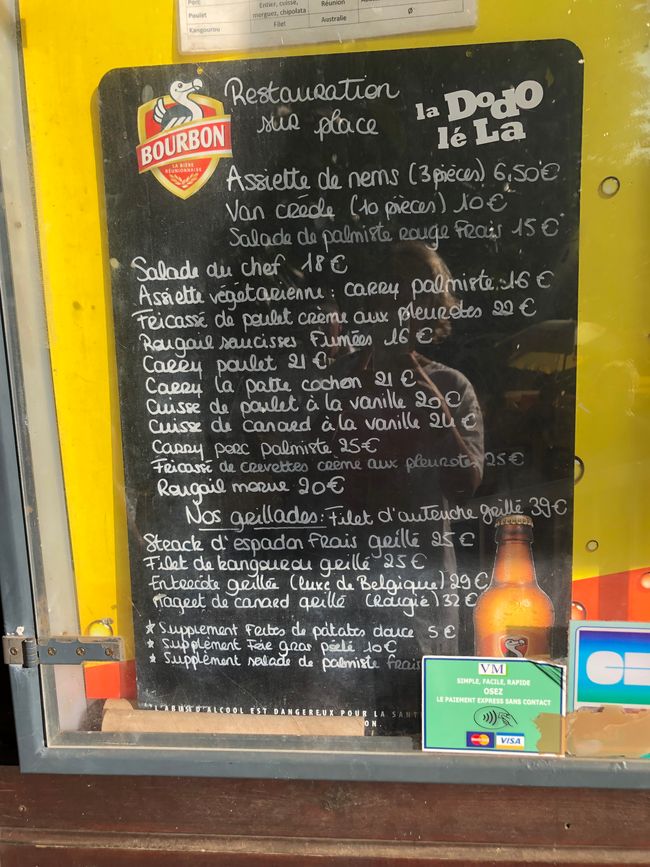 Porc
Entier, cuisse,
Réunion
Poulet
merguez, chipolata
Kangourou
Filet
Australie
Ø
BOURBON
LA BIÈRE
RÉUNIONNAISE
Restauration
sur place
la Dodo
lé La
Assiette de nems (3 pièces) 6,50€
Van créole (10 pièces) 10€
Salade de palmiste rouge Frais 15€
Salade du chef 18€
Assiette végétarienne : carry palmiste : 16€
Fricassé de poulet crème aux pleurotes 22€
Rougail saucisses Fumées 16€
Carry poulet 21€
Carry la patte cochon 21€
Cuisse de poulet à la vanille 20€
Cuisse de canard à la vanille 24€
Carry porc palmiste 25€
Fricassé de crevettes crème aux pleurotes 25€
Rougail morue 20€
Nos grillades : Filet d'autruche grillé 39€
Steack d'espadon Frais grillé 25€
Filet de kangourou grillé 25€
Entrecôte grillée (luxe de Belgique) 29€
Magret de canard grillé (Rougié) 32€
★ Supplément Frites de patates douce 5€
★ Supplément Foie gras poêlé 10€
★ Supplément salade de palmiste Frais
L'ABUS D'ALCOOL EST DANGEREUX POUR LA SANT
ON
VM
SIMPLE, FACILE, RAPIDE
OSEZ
LE PAIEMENT EXPRESS SANS CONTACT
MasterCard
VISA
CB